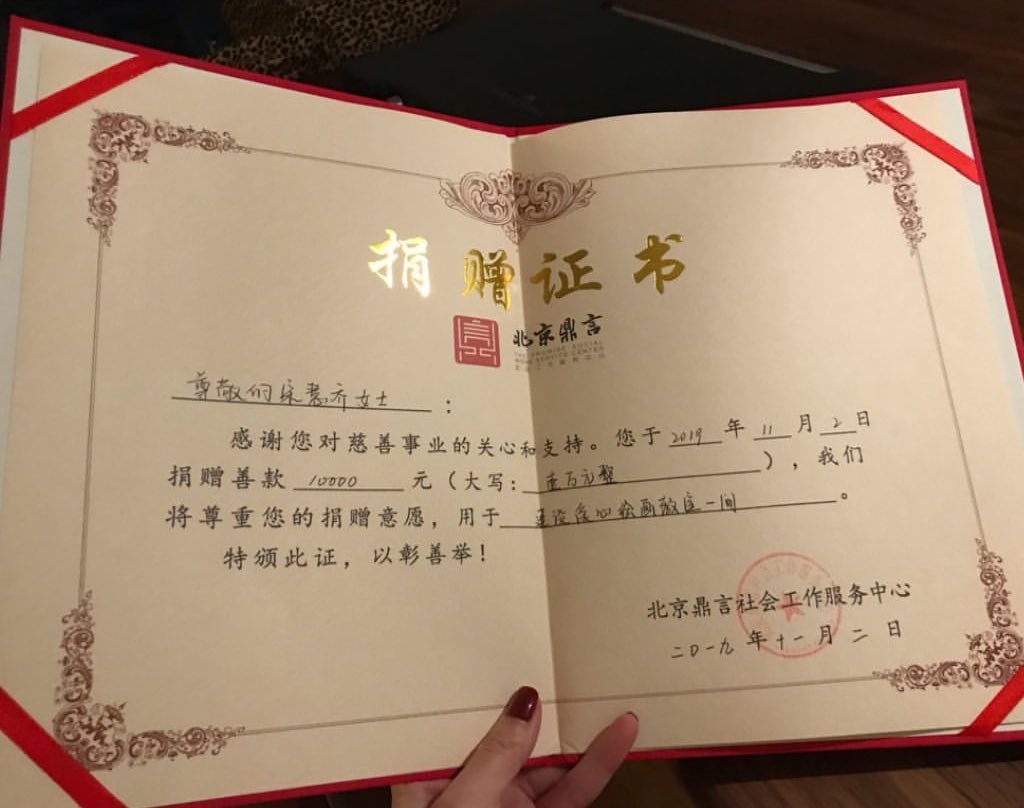 捐赠证书
北京鼎言
尊敬的宋慧乔女士：
感谢您对慈善事业的关心和支持。您于2019年11月2日
捐赠善款10000元（大写：壹万元整），我们
将尊重您的捐赠意愿，用于建设爱心绘画教室一间。
特颁此证，以彰善举！
北京鼎言社会工作服务中心
二0一九年十一月二日